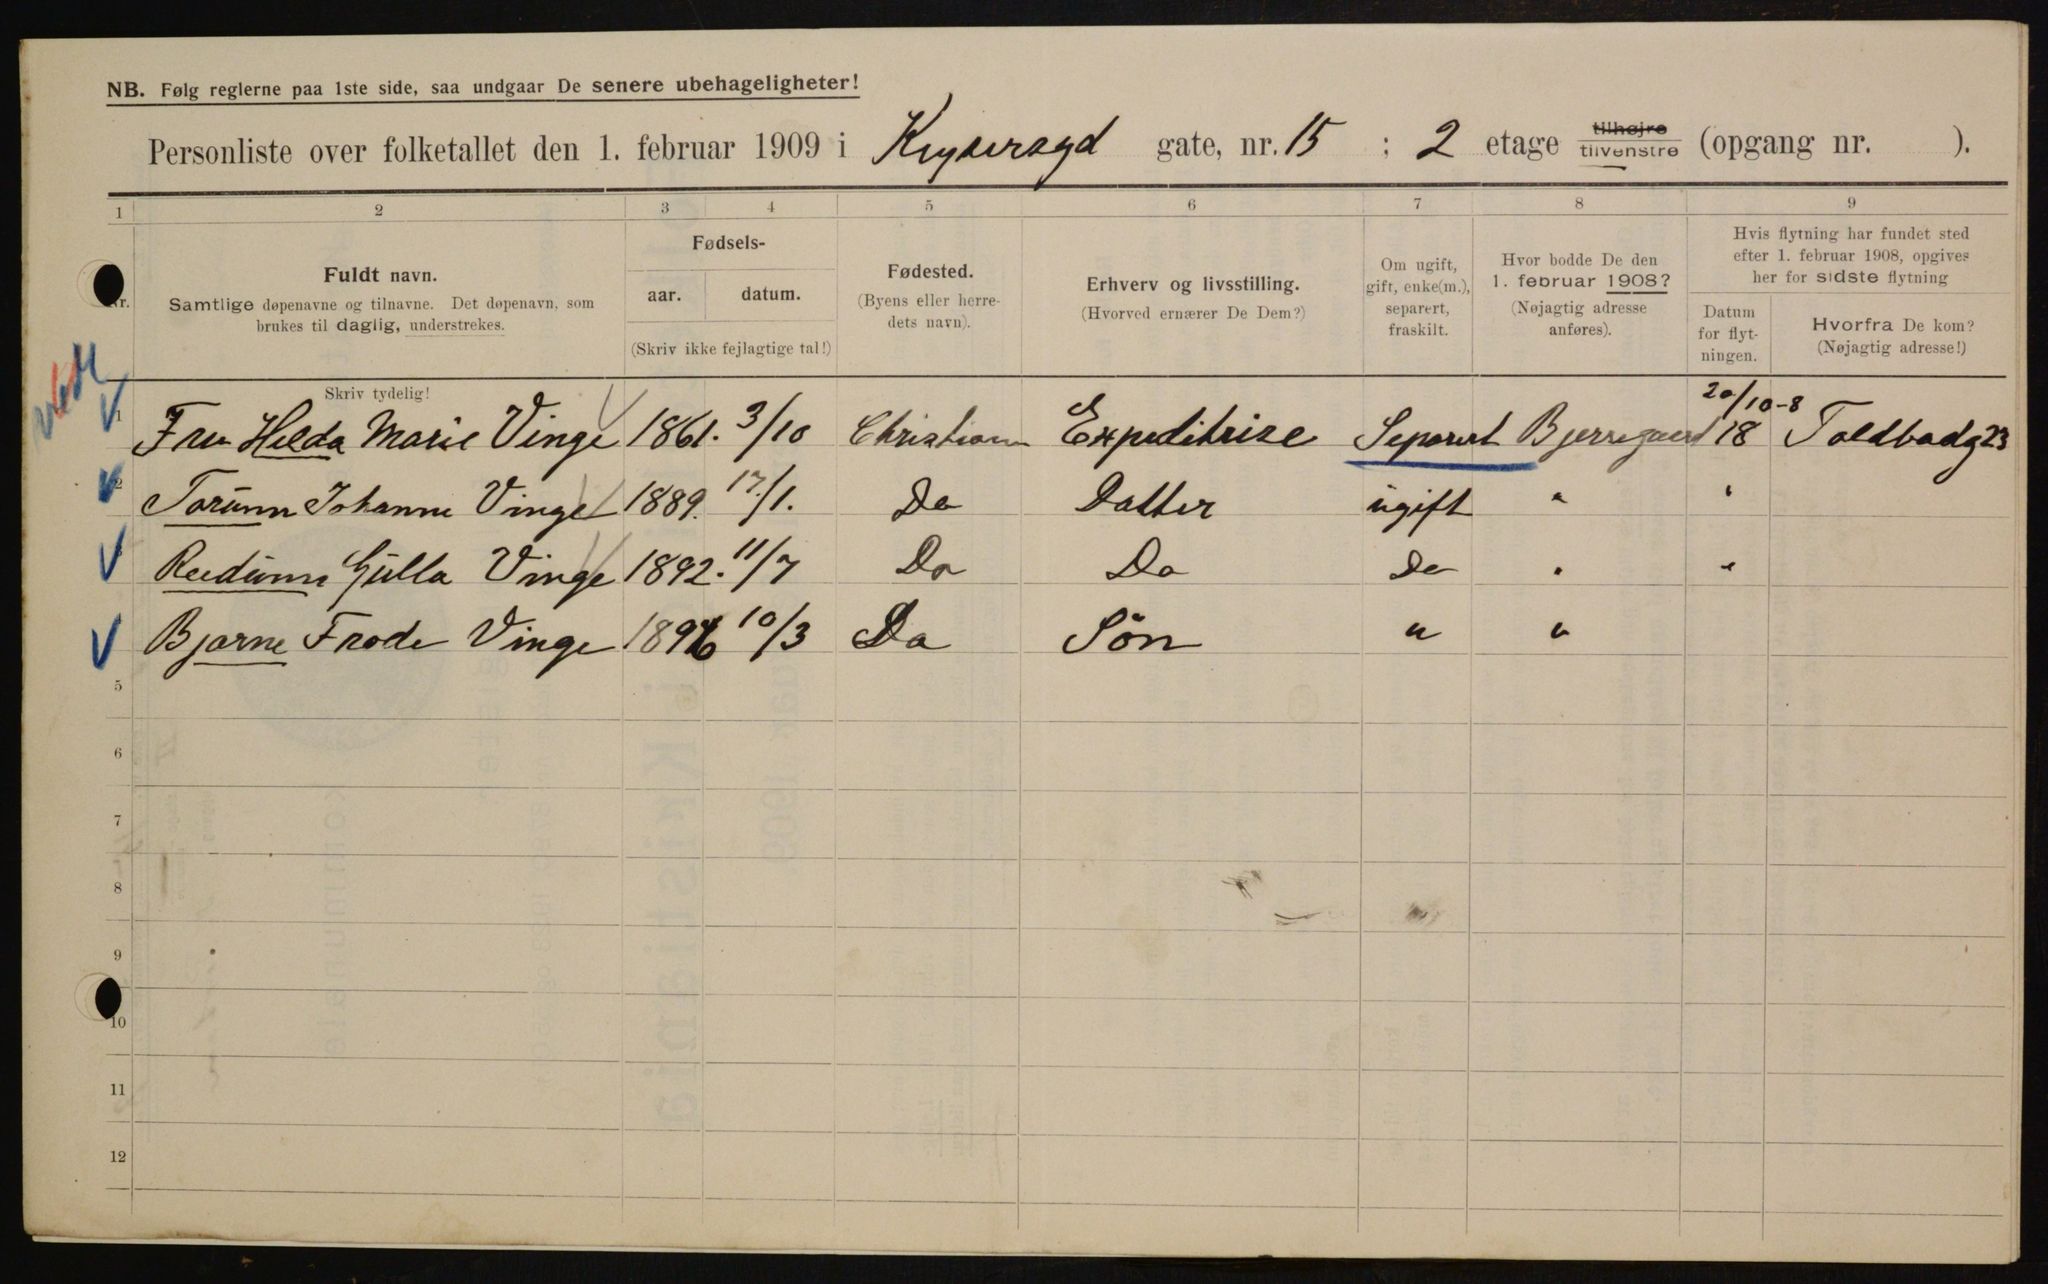 NB. Følg reglerne paa 1ste side, saa undgaar De senere ubehageligheter!
Personliste over folketallet den 1. februar 1909 i Keysersgd gate, nr. 15 ; 2 etage tilhøjre tilvenstre (opgang nr. ).
1 2 3 4 5 6 7 8 9
Nr.
Fuldt navn.
Samtlige døpenavne og tilnavne. Det døpenavn, som
brukes til daglig, understrekes.
Fødsels-
aar. datum.
(Skriv ikke fejlagtige tal!)
Fødested.
(Byens eller herre-
dets navn).
Erhverv og livsstilling.
(Hvorved ernærer De Dem?)
Om ugift,
gift, enke(m.),
separert,
fraskilt.
Hvor bodde De den
1. februar 1908?
(Nøjagtig adresse
anføres).
Hvis flytning har fundet sted
efter 1. februar 1908, opgives
her for sidste flytning
Datum
for flyt-
ningen.
Hvorfra De kom?
(Nøjagtig adresse!)
Skriv tydelig!
1 Fru Helda Marie Vinge 1861. 3/10 Christiania Expeditrise Separert Bjerregaard 18 20/10-8 Toldbodg 23
2 Torunn Johanne Vinge 1889. 17/1. Do Datter ugift " "
Reidunn Gulla Vinge 1892. 11/7 Do Do Do " "
Bjarne Frode Vinge 1896 10/3 Do Sön " "
5
6
7
8
9
10
11
12